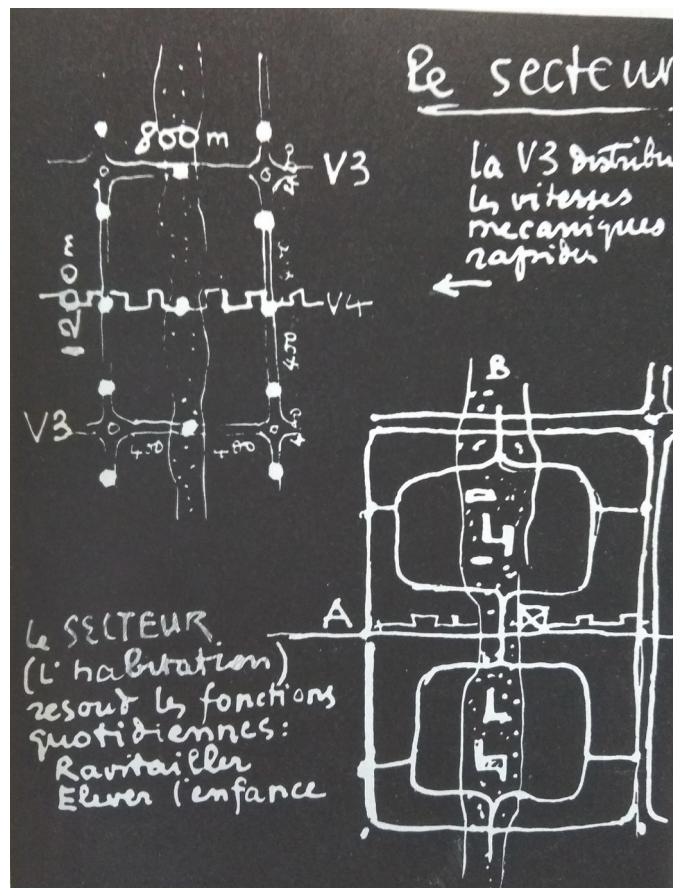 Le secteur
la V3 distribu
les vitesses
mecaniques
rapides
800 m
V3
400
1200 m
V4
400
V3
400
400
B
A
Le SECTEUR
(L'habitation)
resout les fonctions
quotidiennes:
Ravitailler
Elever l'enfance